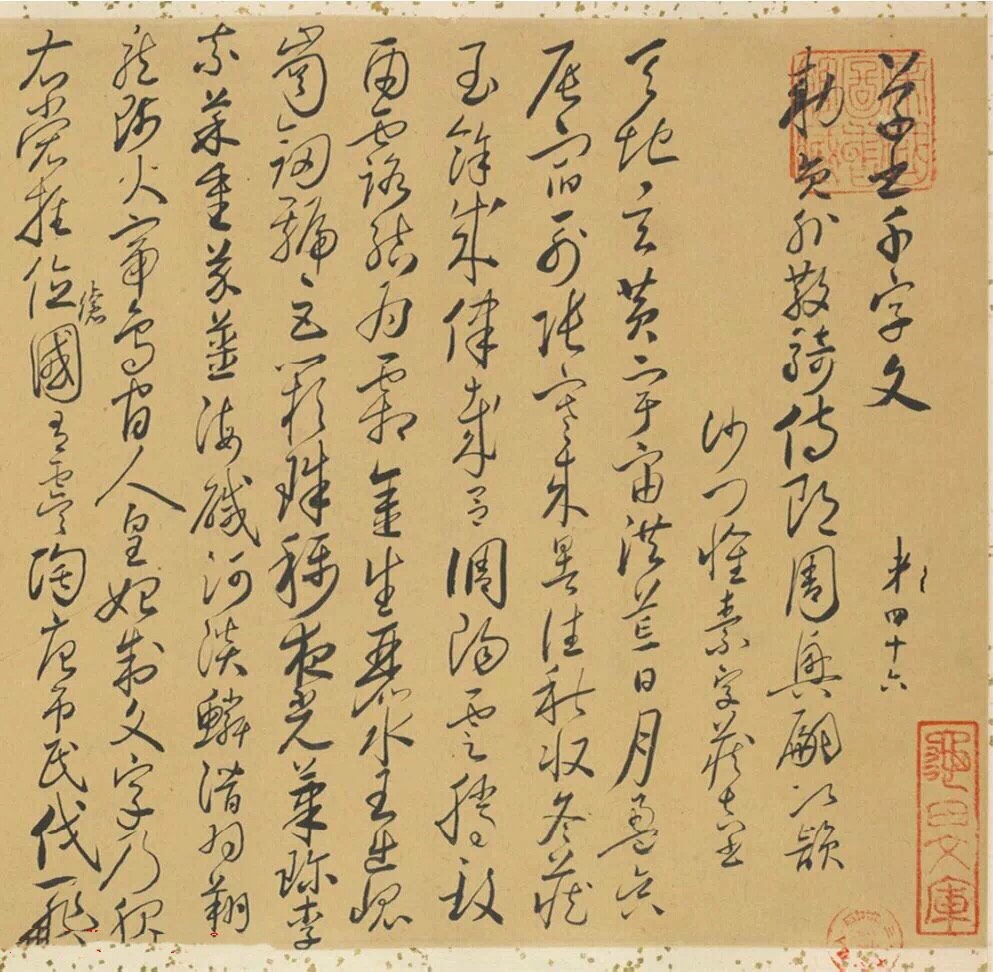 草書千字文 第四十六
勅員外散騎侍郎周興嗣次韻
沙門懷素字藏真書
天地玄黃宇宙洪荒日月盈昃
辰宿列張寒來暑往秋收冬藏
閏餘成律歲呂調陽雲騰致
雨露結為霜金生麗水玉出崑
岡劍號巨闕珠稱夜光菓珍李
柰菜重芥薑海鹹河淡鱗潛羽翔
龍師火帝鳥官人皇始制文字乃服
衣裳推位讓國有虞陶唐弔民伐
文庫